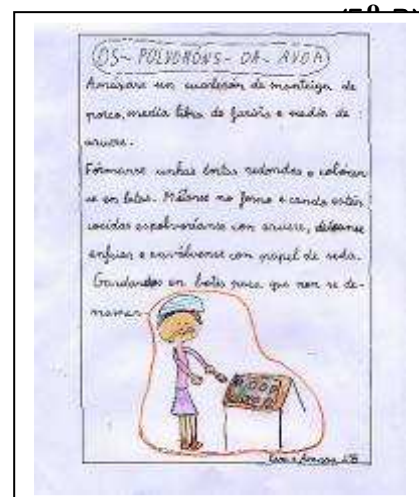 OS-POLVORÓNS-DA-AVOA
Amásase un cuarterón de manteiga de
porco, media libra de fariña e media de
azucre.
Fórmanse unhas tortas redondas e colócan
se en latas. Métense no forno e cando estén
cocidas espolvoréanse con azucre, déixanse
enfriar e envólvense con papel de seda.
Gardandos en botes para que non se de-
rraman